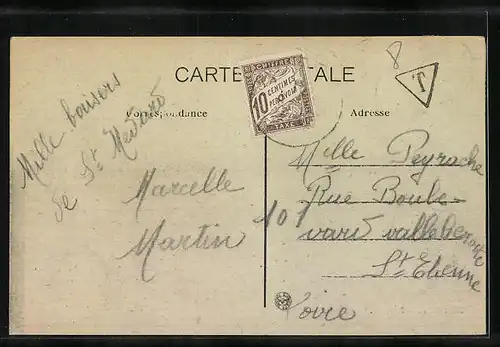 CARTE POSTALE
Correspondance
Adresse
8
T
CHIFFRE
10 CENTIMES
À PERCEVOIR
TAXE
Mille baisers
de St Médard
Marcelle
Martin
Mlle Peyrache
Rue Boule-
vard valbenoite
101
St Etienne
Loire